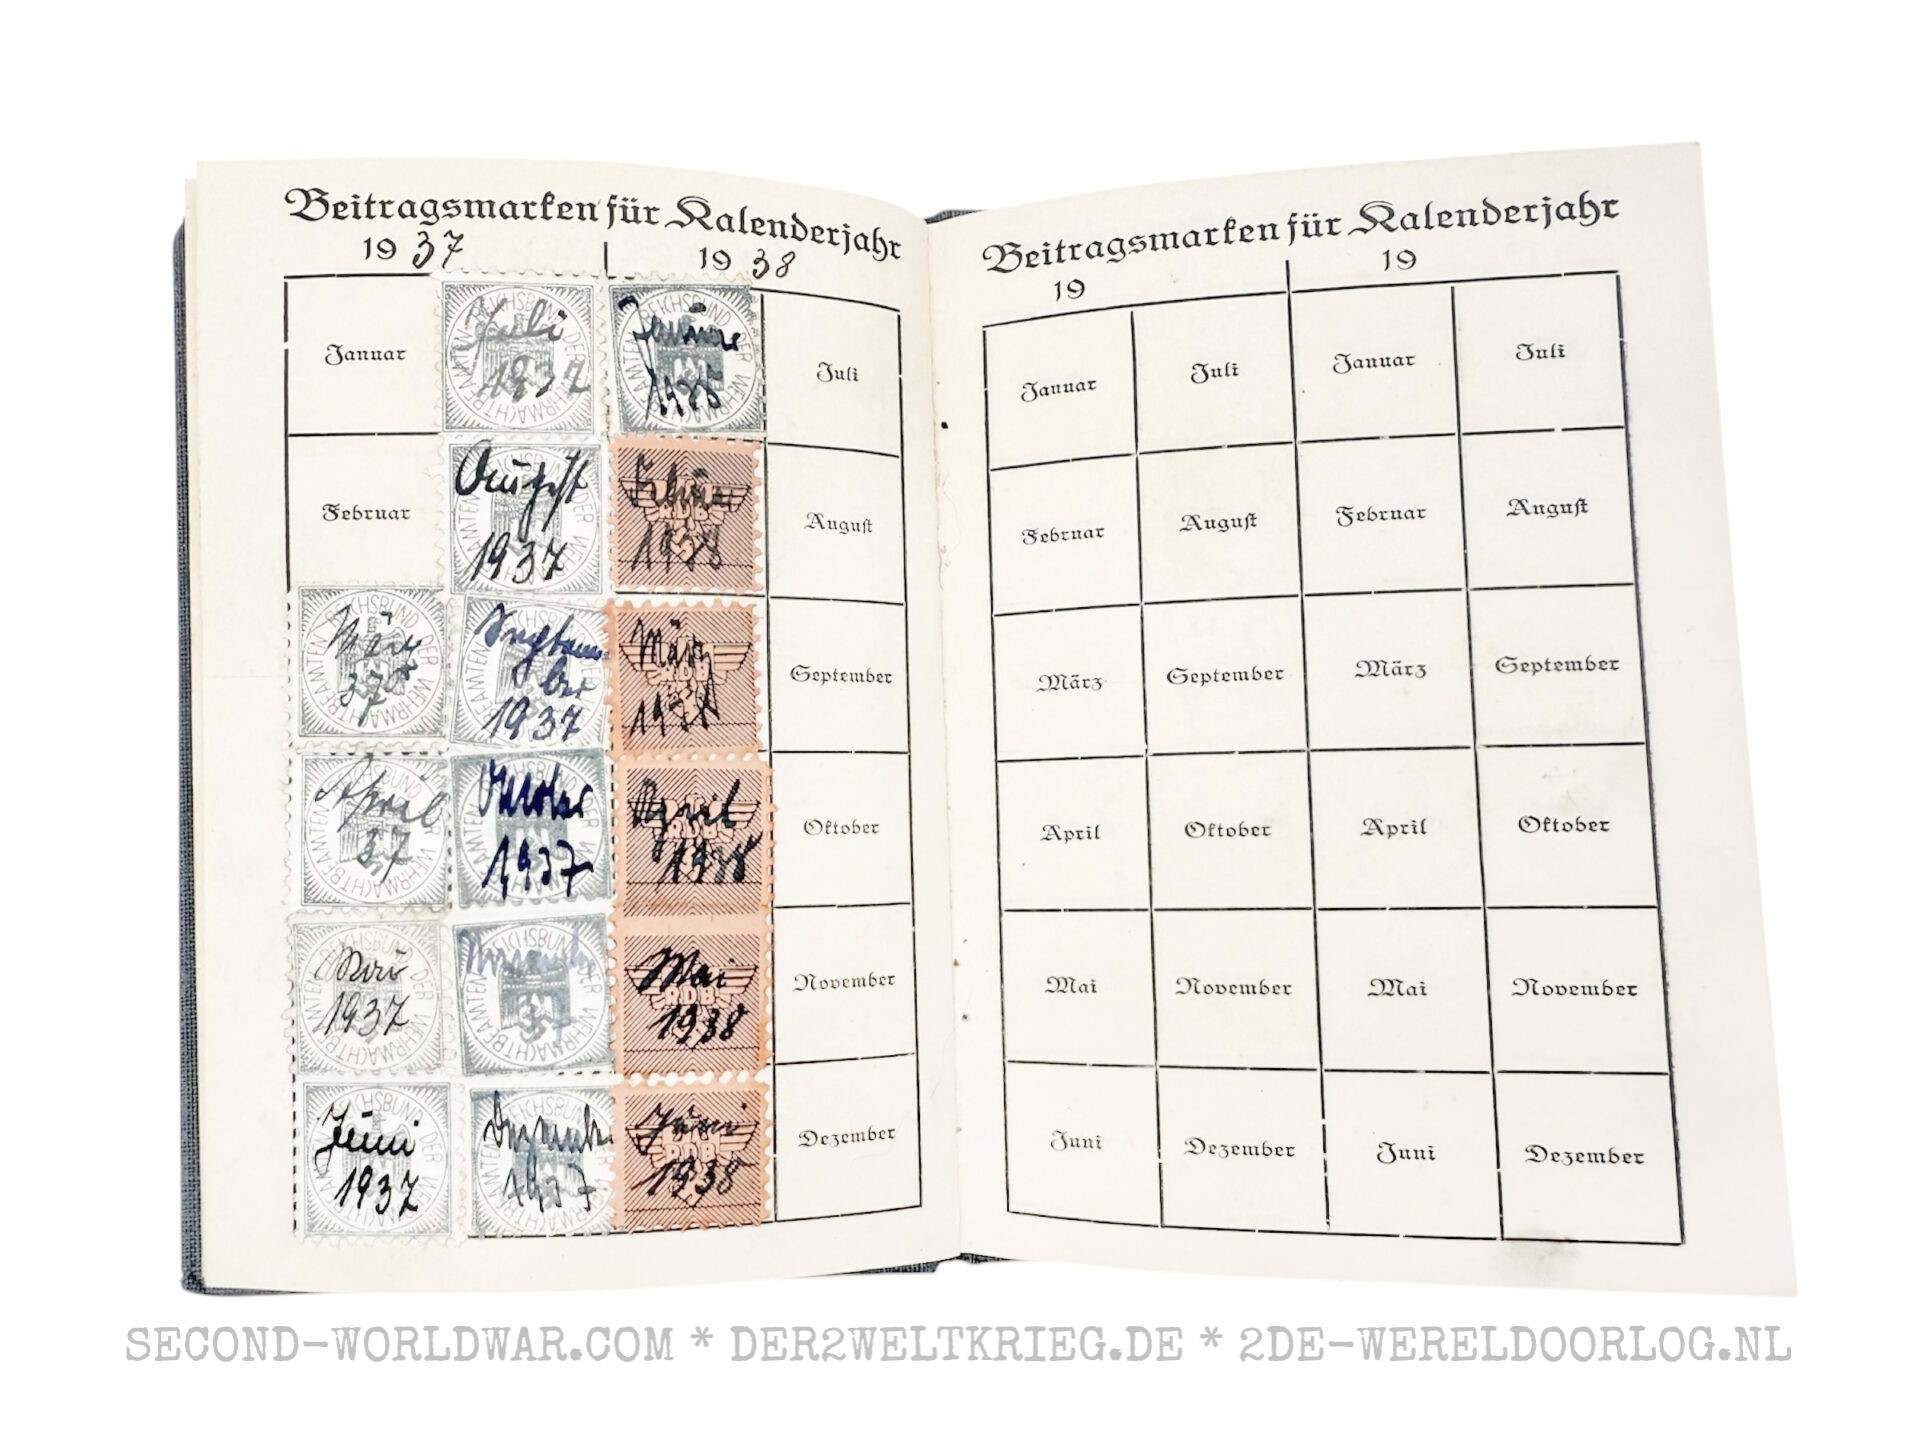 Beitragsmarken für Kalenderjahr
1937
1938
Januar
Februar
März
37
April
37
Mai
1937
Juni
1937
Juli
1937
August
1937
Septem-
ber
1937
Oktober
1937
November
37
Dezember
1937
Januar
1938
Februar
1938
März
1938
April
1938
Mai
1938
Juni
1938
REICHSBUND DER WEHRMACHTBEAMTEN
RDB
Juli
August
September
Oktober
November
Dezember
Beitragsmarken für Kalenderjahr
19
19
Januar Juli Januar Juli
Februar August Februar August
März September März September
April Oktober April Oktober
Mai November Mai November
Juni Dezember Juni Dezember
SECOND-WORLDWAR.COM * DER2WELTKRIEG.DE * 2DE-WERELDOORLOG.NL